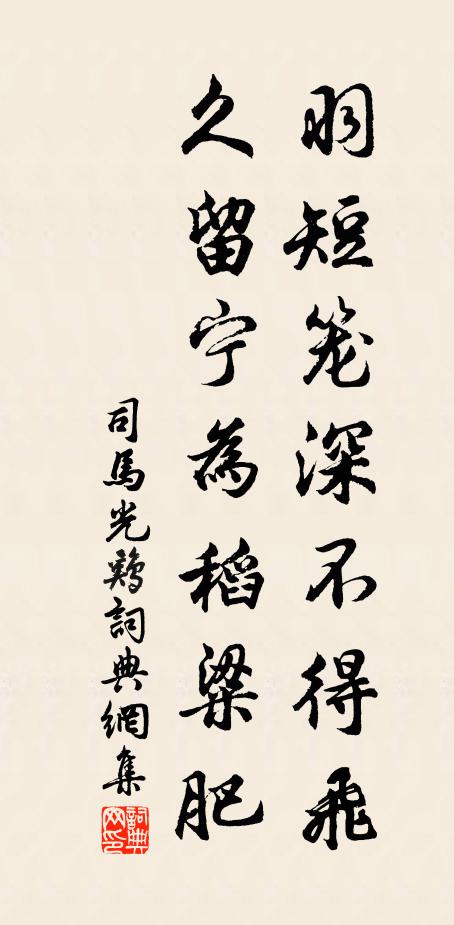 羽短笼深不得飛
久留宁為稻粱肥
司馬光鶏詞典網集
詞典网印